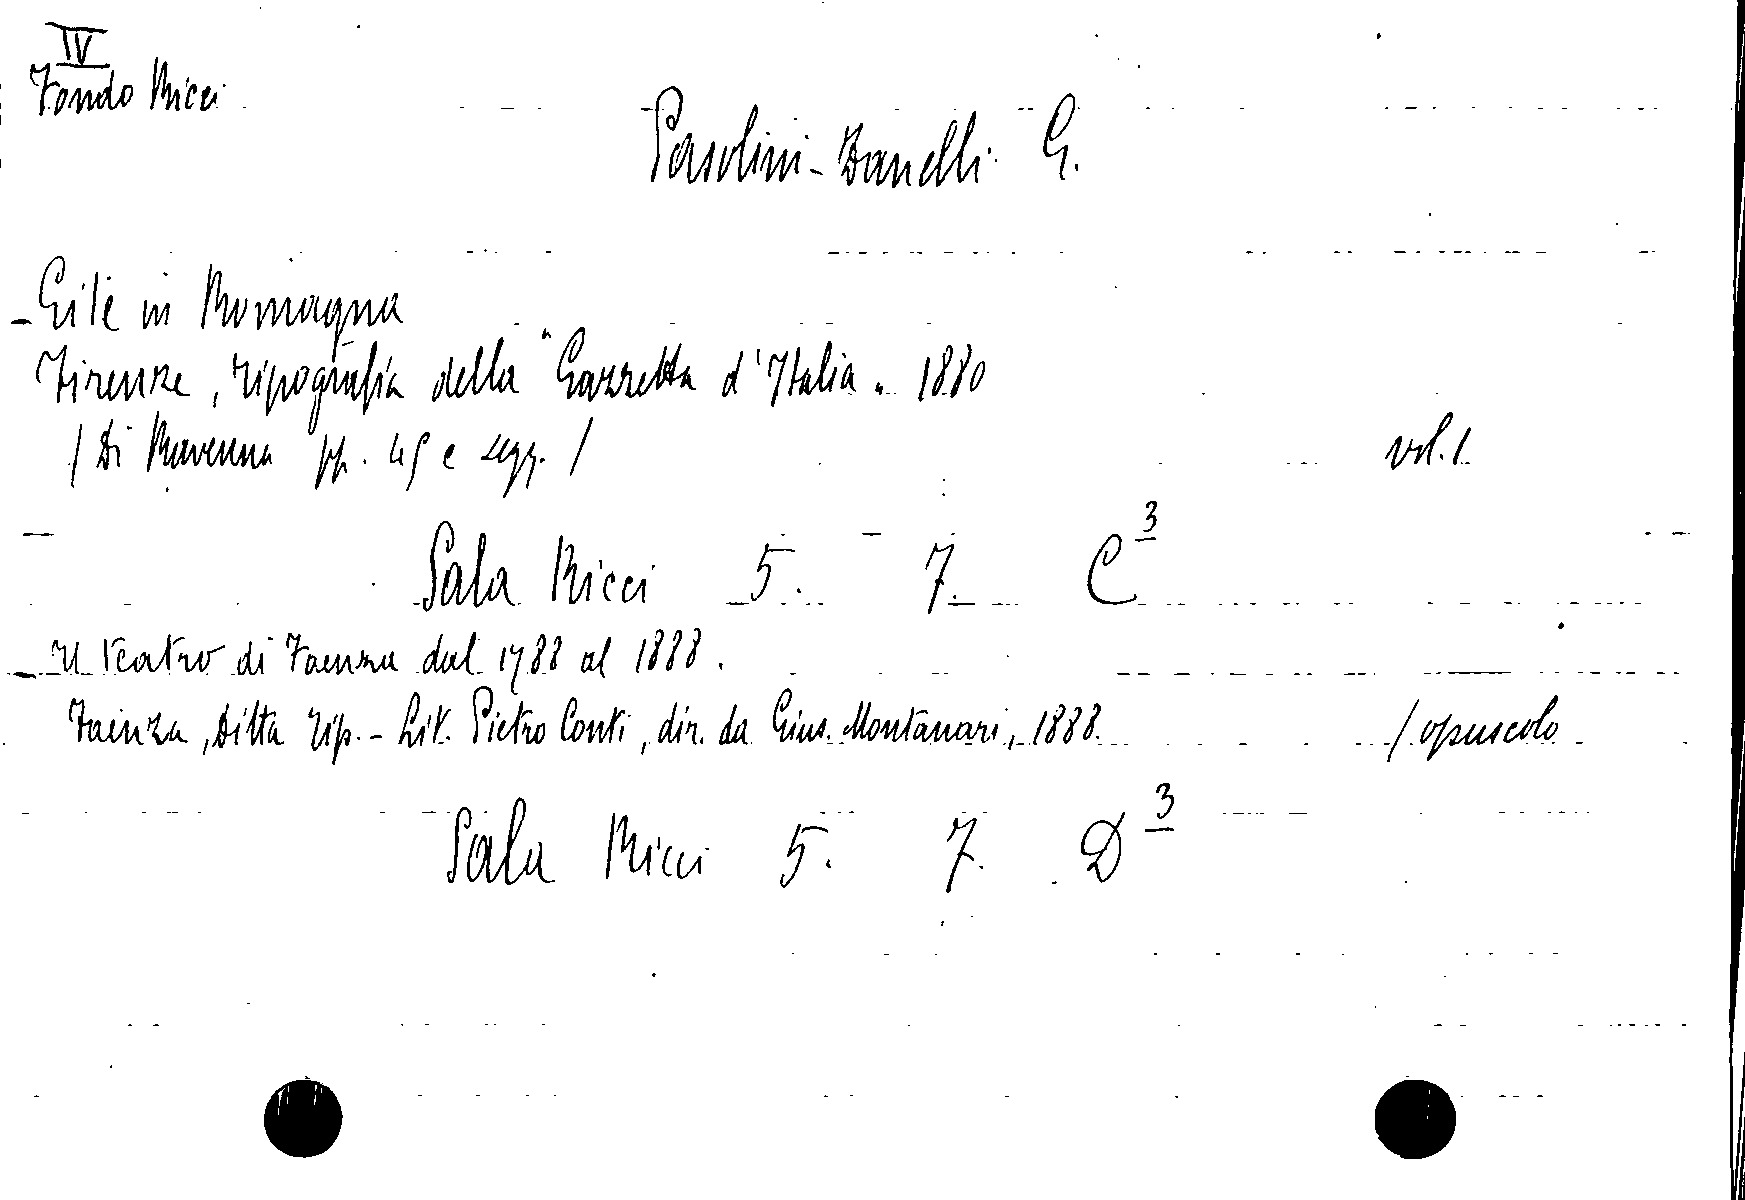 IV
Fondo Ricci
Pasolini-Zanelli G.
- Gite in Romagna
Firenze, tipografia della "Gazzetta d'Italia" 1880
/ Di Ravenna pp. 45 e segg. / vol. 1
Sala Ricci 5. 7. C 3
- Il teatro di Faenza dal 1788 al 1888.
Faenza, Ditta Tip.-Lit. Pietro Conti, dir. da Gius. Montanari, 1888. / opuscolo
Sala Ricci 5. 7. D 3